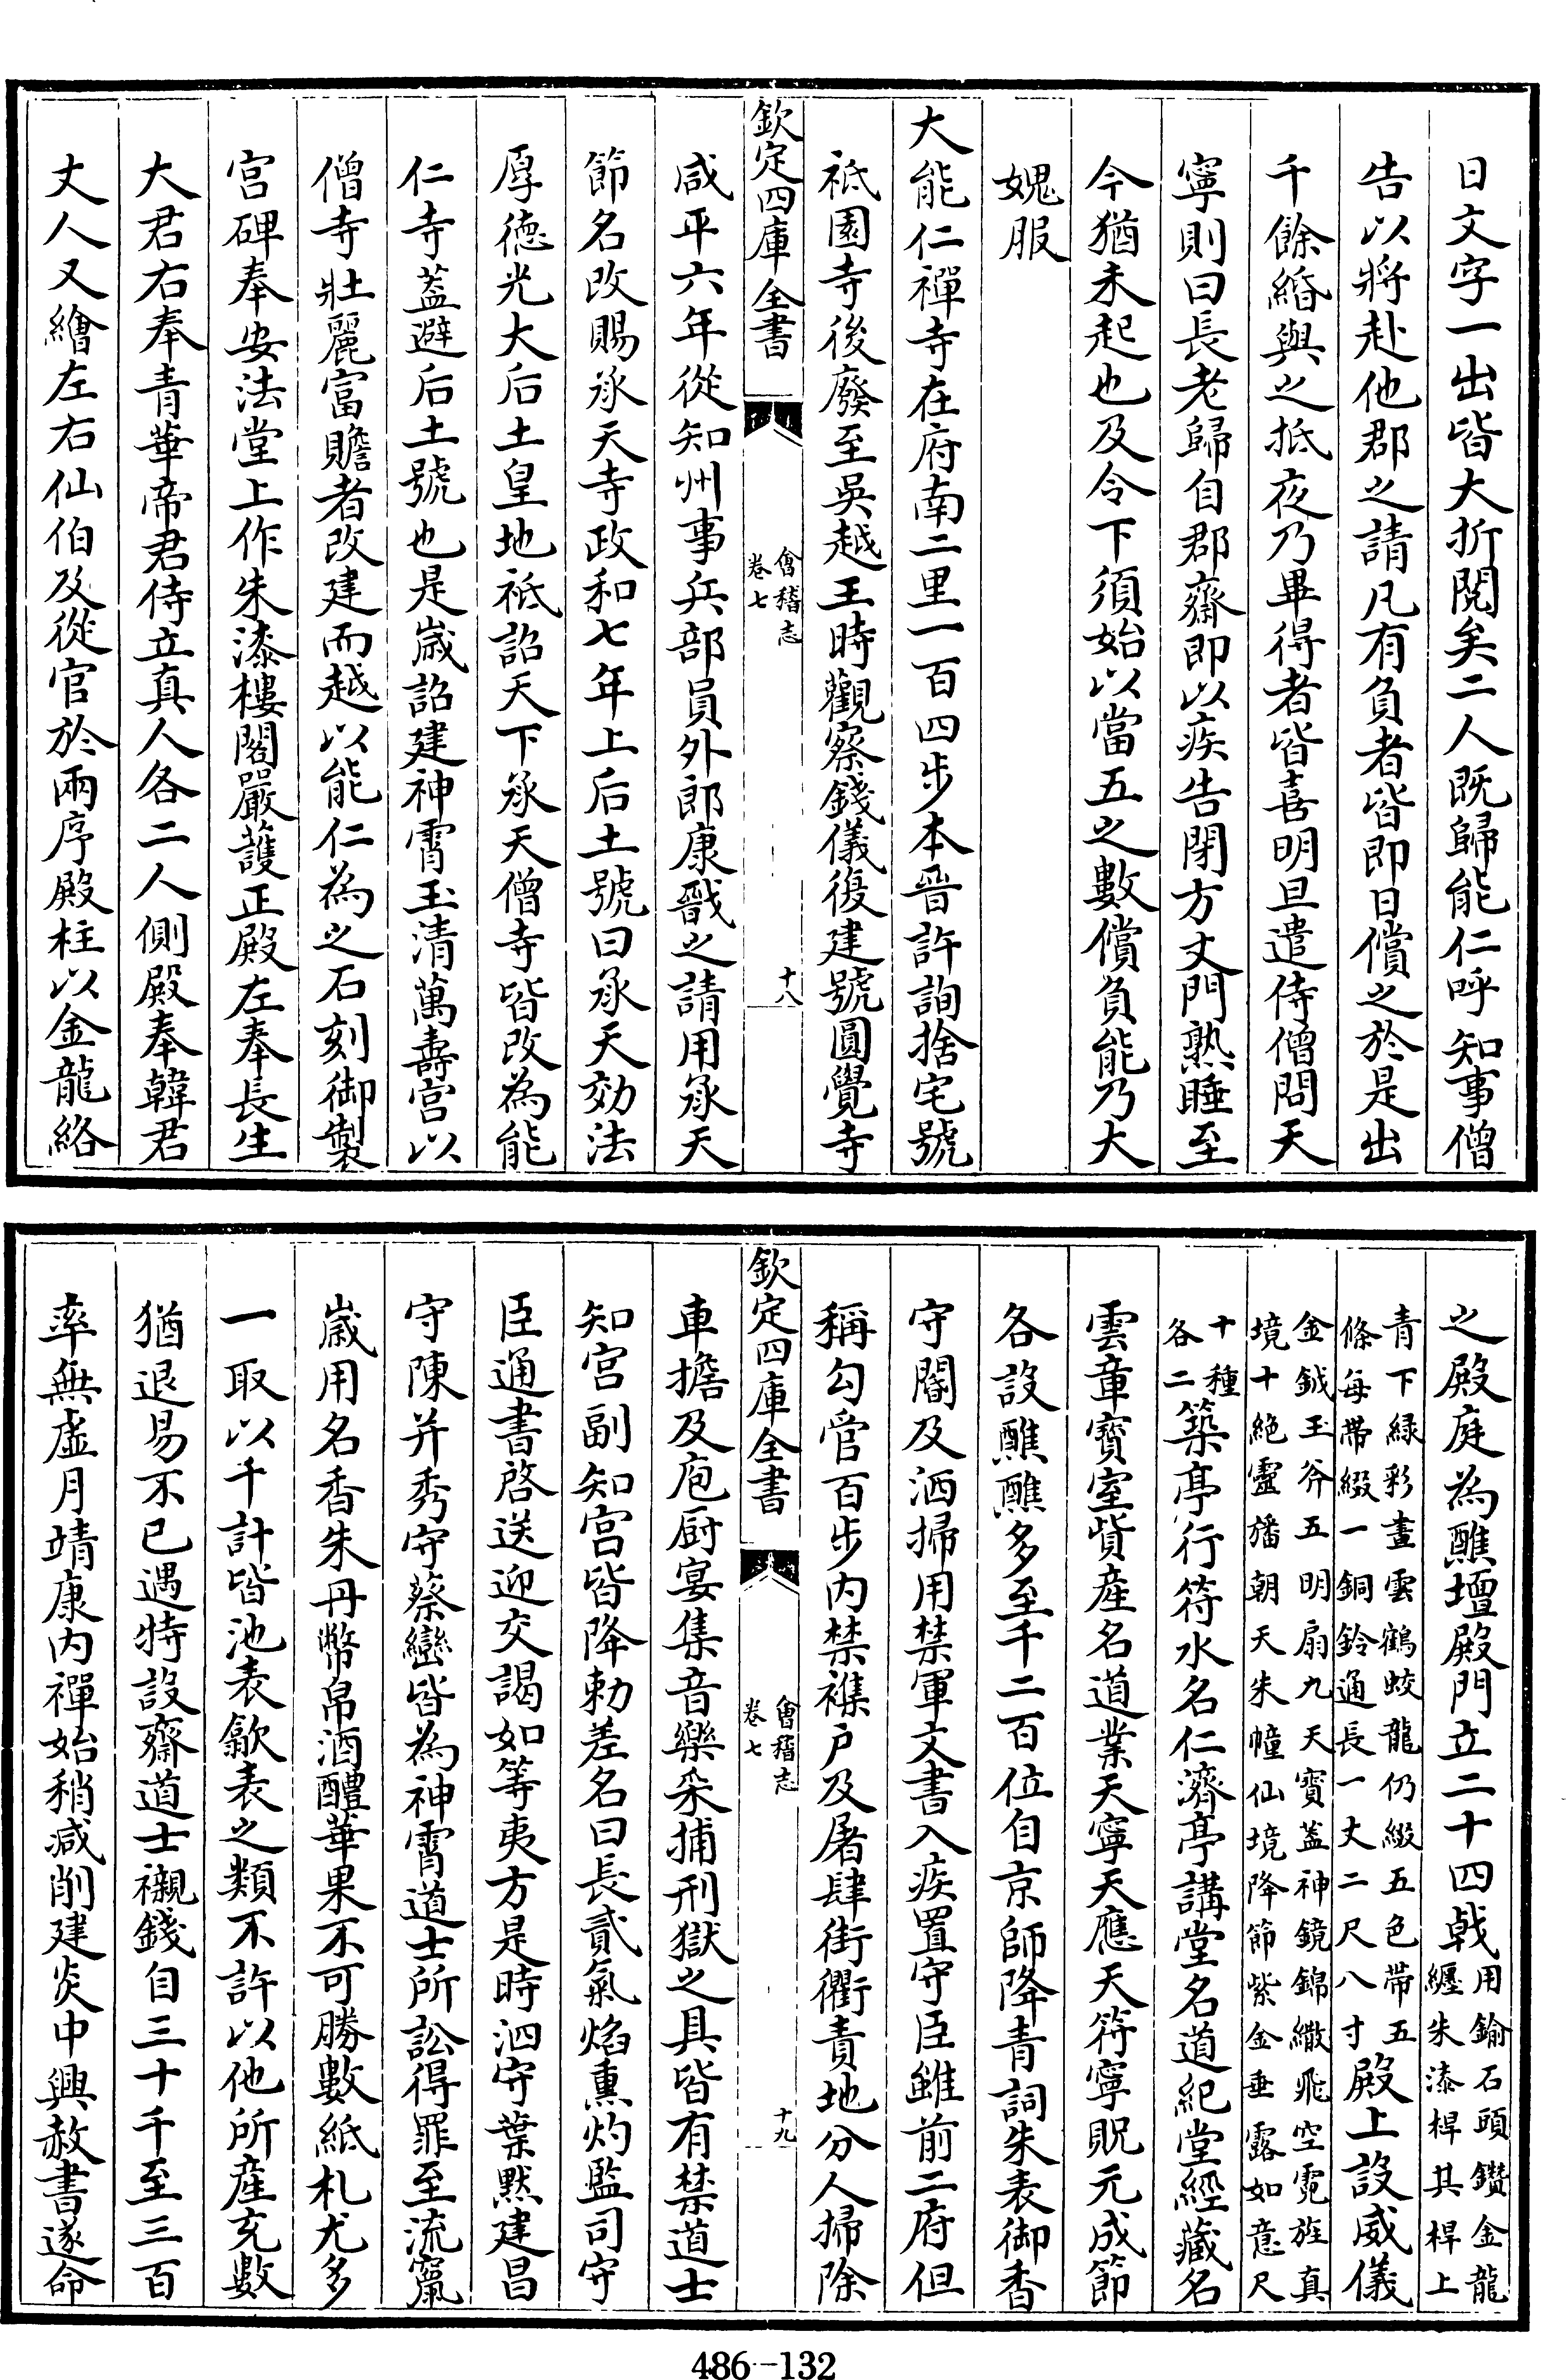 日文字一出皆大折閱矣二人既歸能仁呼知事僧
告以將赴他郡之請凡有負者皆即日償之於是出
千餘緡與之抵夜乃畢得者皆喜明旦遣侍僧問天
寧則曰長老歸自郡齋即以疾告閉方丈門熟睡至
今猶未起也及令下須始以當五之數償負能乃大
媿服
大能仁禪寺在府南二里一百四步本晉許詢捨宅號
祇園寺後廢至吳越王時觀察錢儀復建號圓覺寺
欽定四庫全書
會稽志
卷七
十八
咸平六年從知州事兵部員外郎康戩之請用承天
節名改賜承天寺政和七年上后土號曰承天效法
厚德光大后土皇地祇詔天下承天僧寺皆改為能
仁寺蓋避后土號也是歲詔建神霄玉清萬壽宮以
僧寺壯麗富贍者改建而越以能仁為之石刻御製
宮碑奉安法堂上作朱漆樓閣嚴護正殿左奉長生
大君右奉青華帝君侍立真人各二人側殿奉韓君
丈人又繪左右仙伯及從官於兩序殿柱以金龍絡
之殿庭為醮壇殿門立二十四戟用鍮石頭鑽金龍
纏朱漆桿其桿上
青下綠彩畫雲鶴蛟龍仍綴五色帶五
條每帶綴一銅鈴通長一丈二尺八寸殿上設威儀
金鉞玉斧五明扇九天寶蓋神鏡錦繖飛空霓旌真
境十絕靈旛朝天朱幢仙境降節紫金垂露如意尺
十種
各二築亭行符水名仁濟亭講堂名道紀堂經藏名
雲章寶室貲產名道業天寧天應天符寧貺元成節
各設醮醮多至千二百位自京師降青詞朱表御香
守閽及洒掃用禁軍文書入疾置守臣雖前二府但
稱勾管百步內禁襍戶及屠肆街衢責地分人掃除
欽定四庫全書
會稽志
卷七
十九
車擔及庖厨宴集音樂采捕刑獄之具皆有禁道士
知宮副知宮皆降勅差名曰長貳氣焰熏灼監司守
臣通書啓送迎交謁如等夷方是時泗守葉默建昌
守陳并秀守蔡巒皆為神霄道士所訟得罪至流竄
歲用名香朱丹幣帛酒醴華果不可勝數紙札尤多
一取以千計皆池表歙表之類不許以他所產充數
猶退易不已遇特設齋道士襯錢自三十千至三百
率無虛月靖康內禪始稍減削建炎中興赦書遂命
486-132